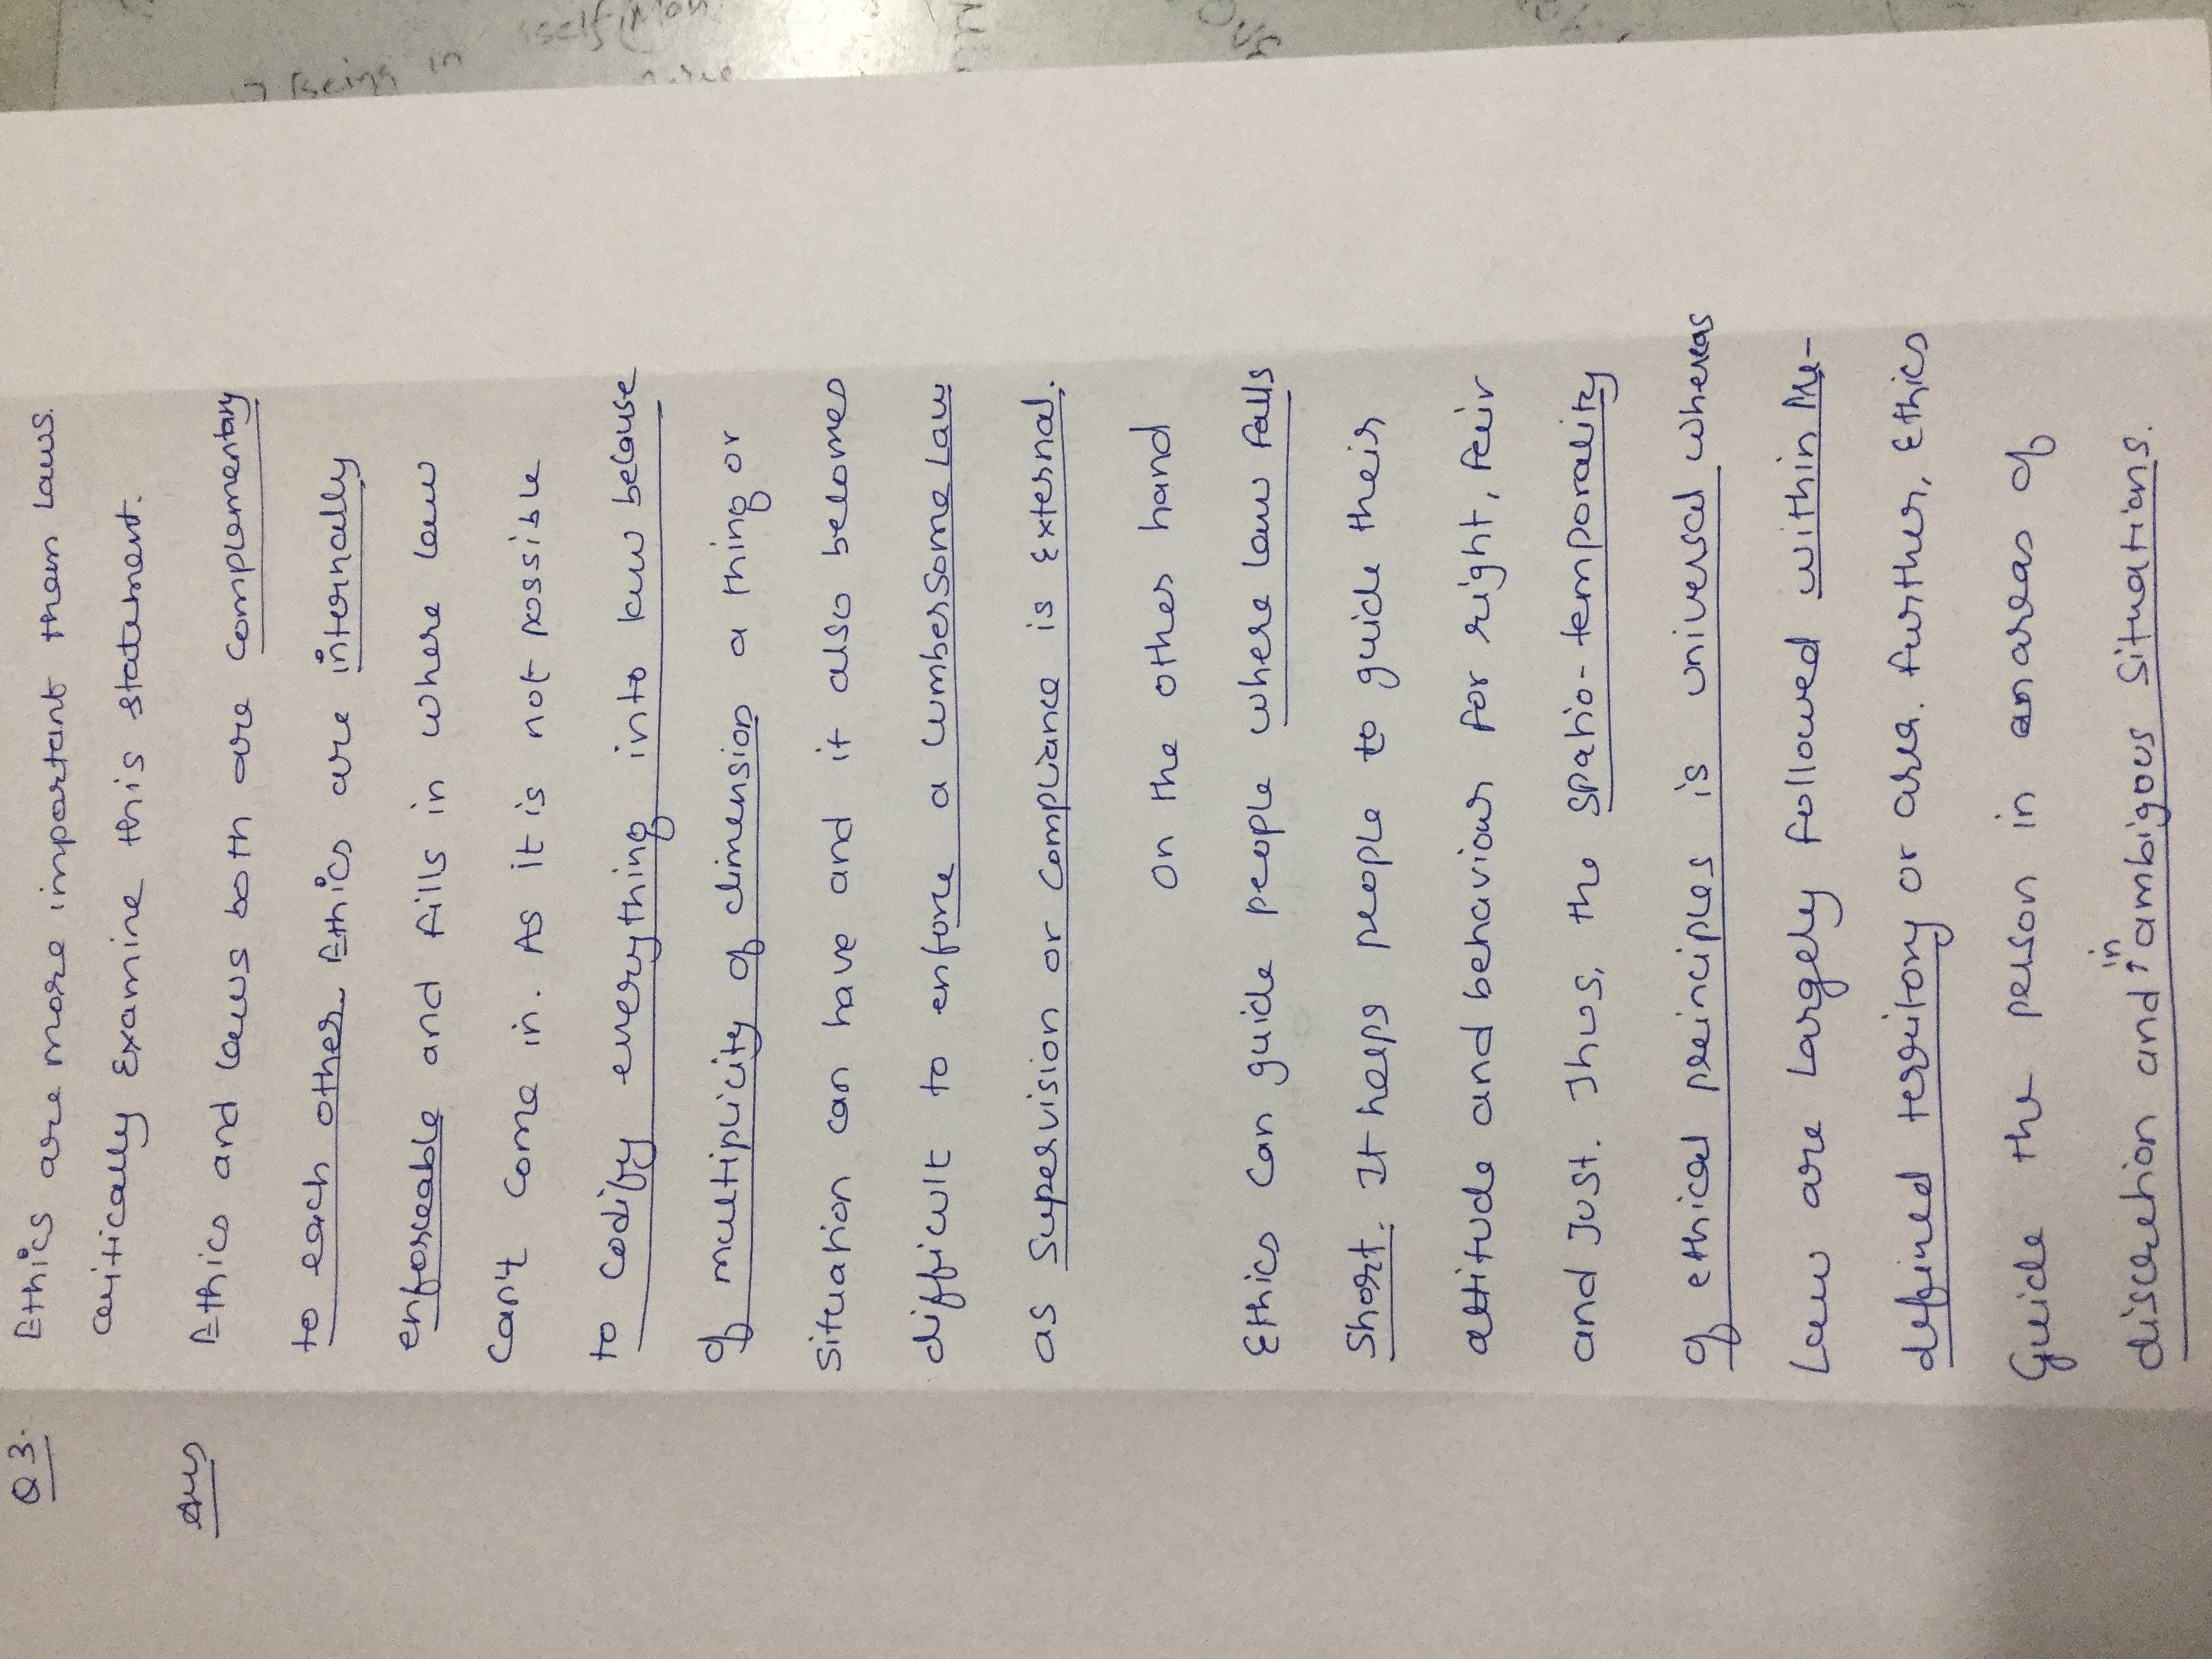 Being in
iself/Man
Q3. Ethics are more important than laws.
critically Examine this statement.
Ans Ethics and laws both are complementary
to each other. Ethics are internally
enforseable and fills in where law
can't come in. As it is not possible
to codify everything into law because
of multiplicity of dimension a thing or
situation can have and it also becomes
difficult to enforce a cumbersome law
as supervision or compliance is External.
On the other hand
Ethics can guide people where law falls
short. It helps people to guide their
attitude and behaviour for right, fair
and Just. Thus, the spatio-temporality
of ethical principles is universal whereas
Law are largely followed within Pre-
defined territory or area. further, Ethics
Guide the person in areas of
discretion and in ambigous situations.